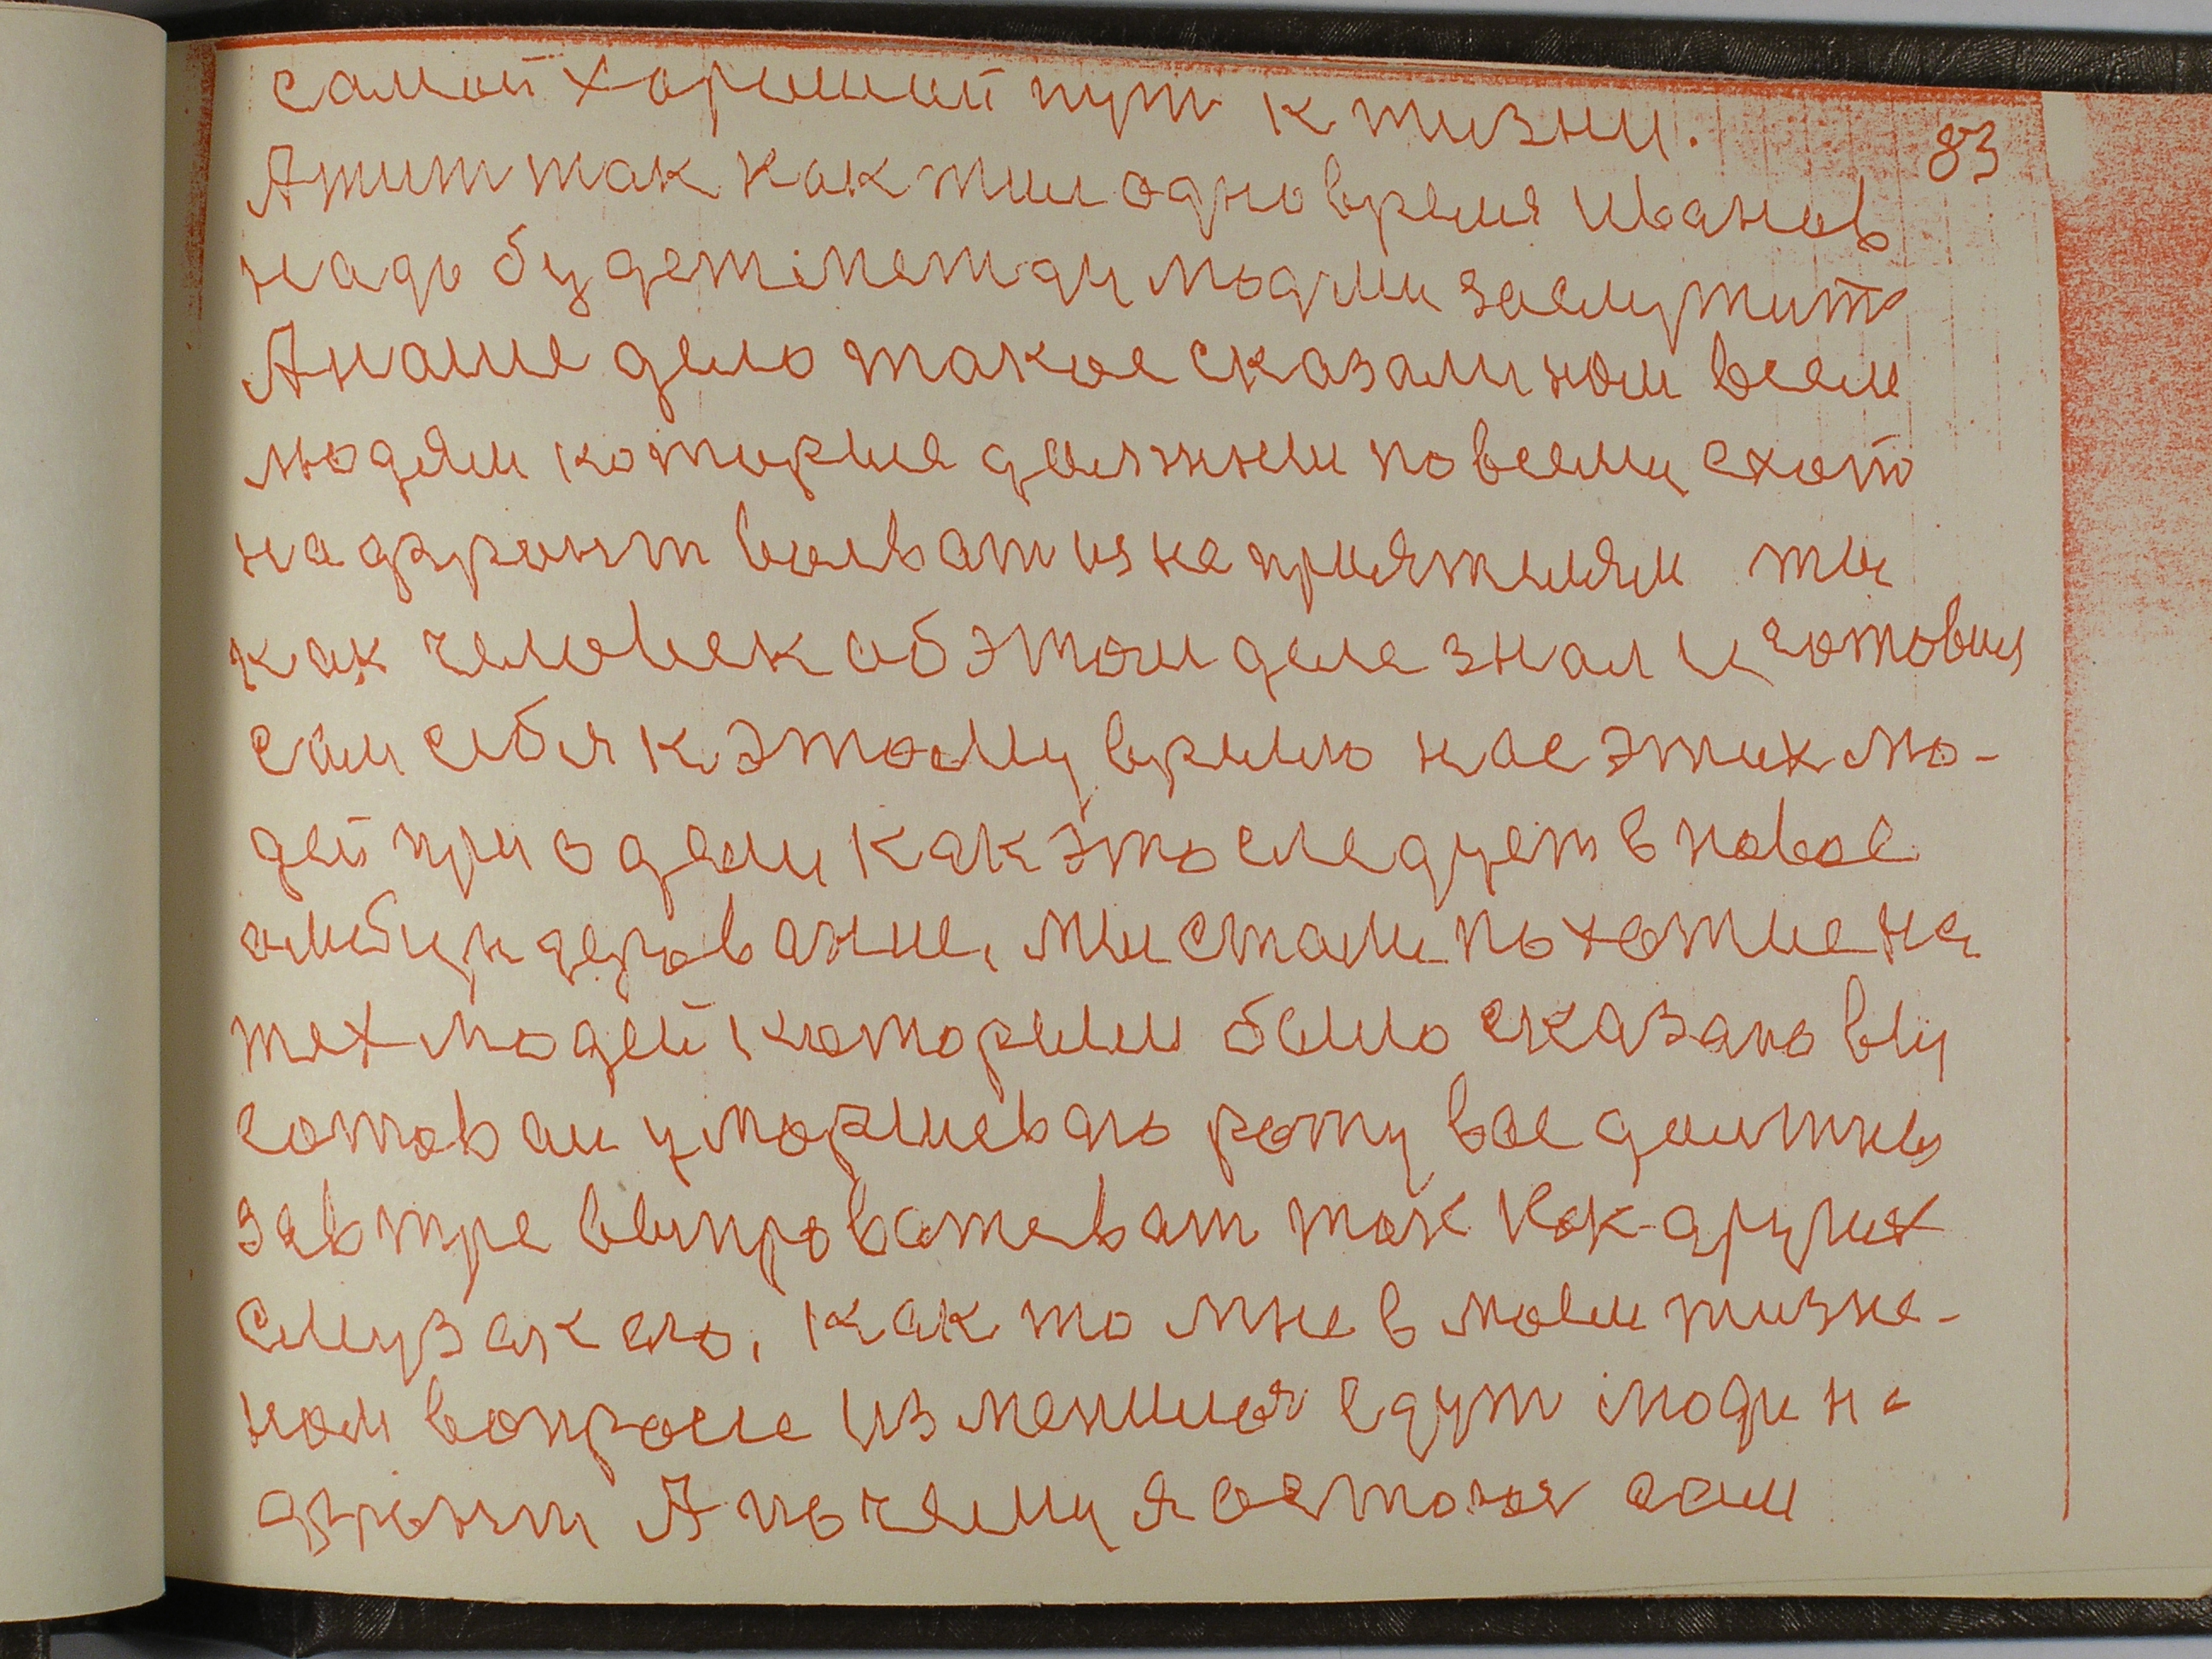 самой хороший пут к жизни.
83
А жит так как жил одно время Иванов
надо будет между людми заслужит
А наше дело такое сказали ном всем
людям которые должны по всему ехат
на фронт воеват из неприятилям ты
как человек об этом деле знал и готовил
сам себя к этому время нас этих лю-
дей приздели как это следует в новое
амбундерование. Мы стали похожие на
тех людей которым было сказано ему
готоваи у моршеваю роту вое должны
завтре выпроважеват так как других
с музакаю. Как то мне в моем жизне-
ном вопросе изменился едут люди на
фронт А почему я остаюя сам